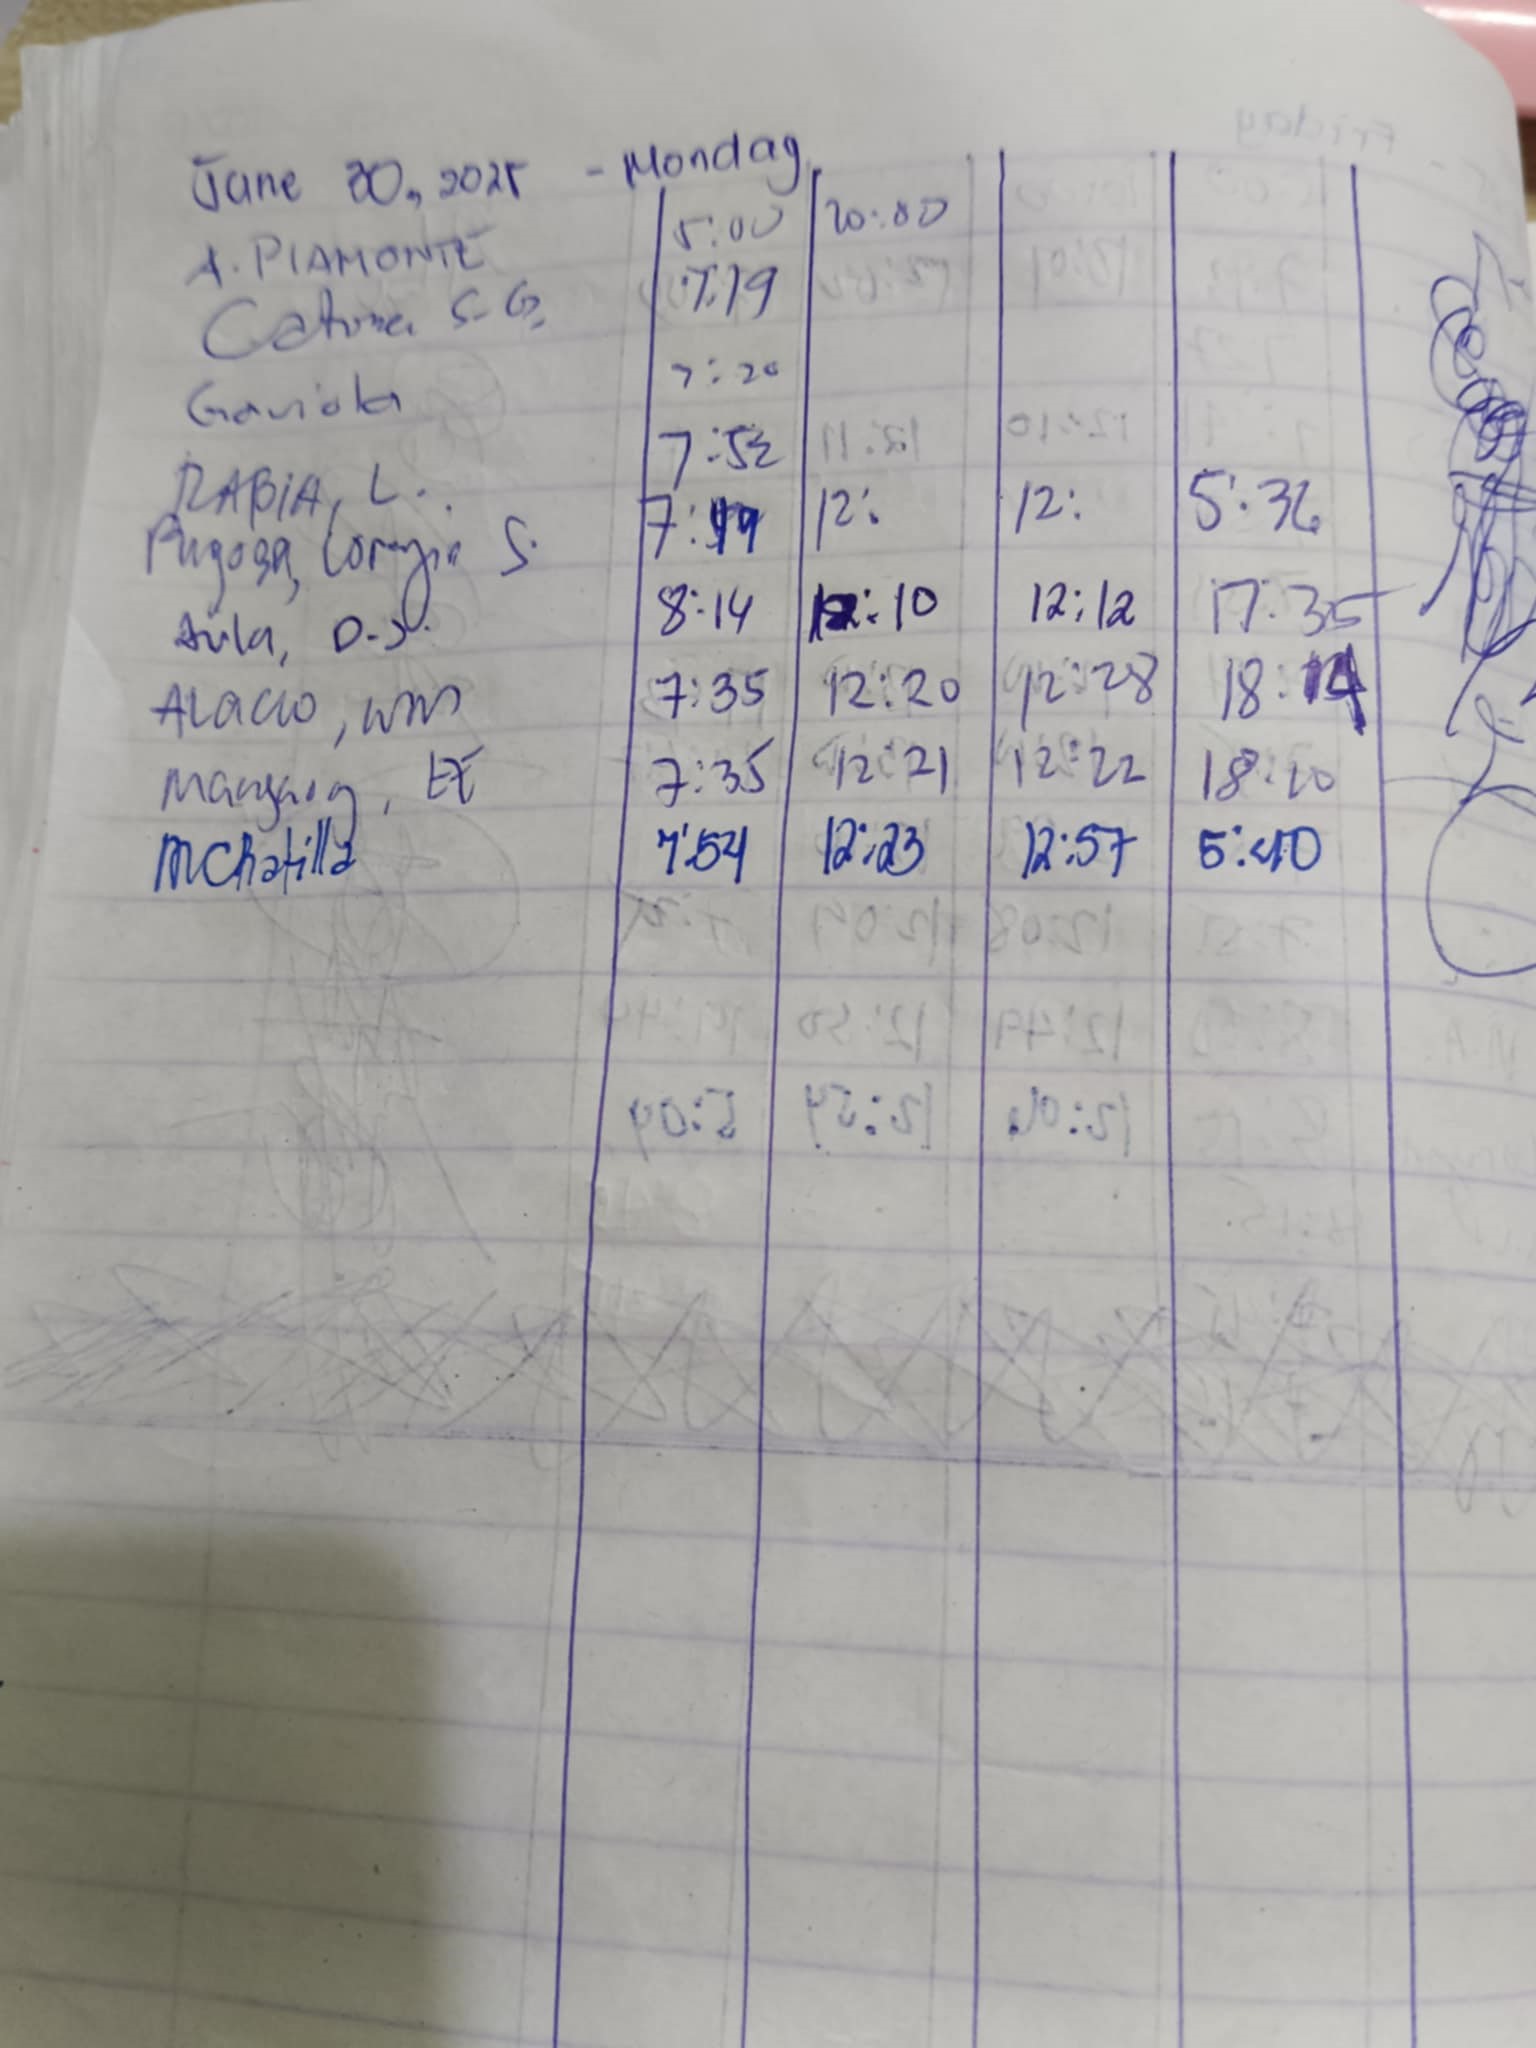 June 30, 2025 - Monday
A. PIAMONTE 5:00 20:00
S. G. 7:19
Gaviola 7:20
RABIA, L. 7:52
Pugosa, S. 7: 12: 12: 5:36
Avila, D.J. 8:14 12:10 12:12 17:35
ALACIO, WM 7:35 12:20 12:28 18:14
7:35 12:21 12:22 18:20
MChatilla 7:54 12:23 12:57 5:40